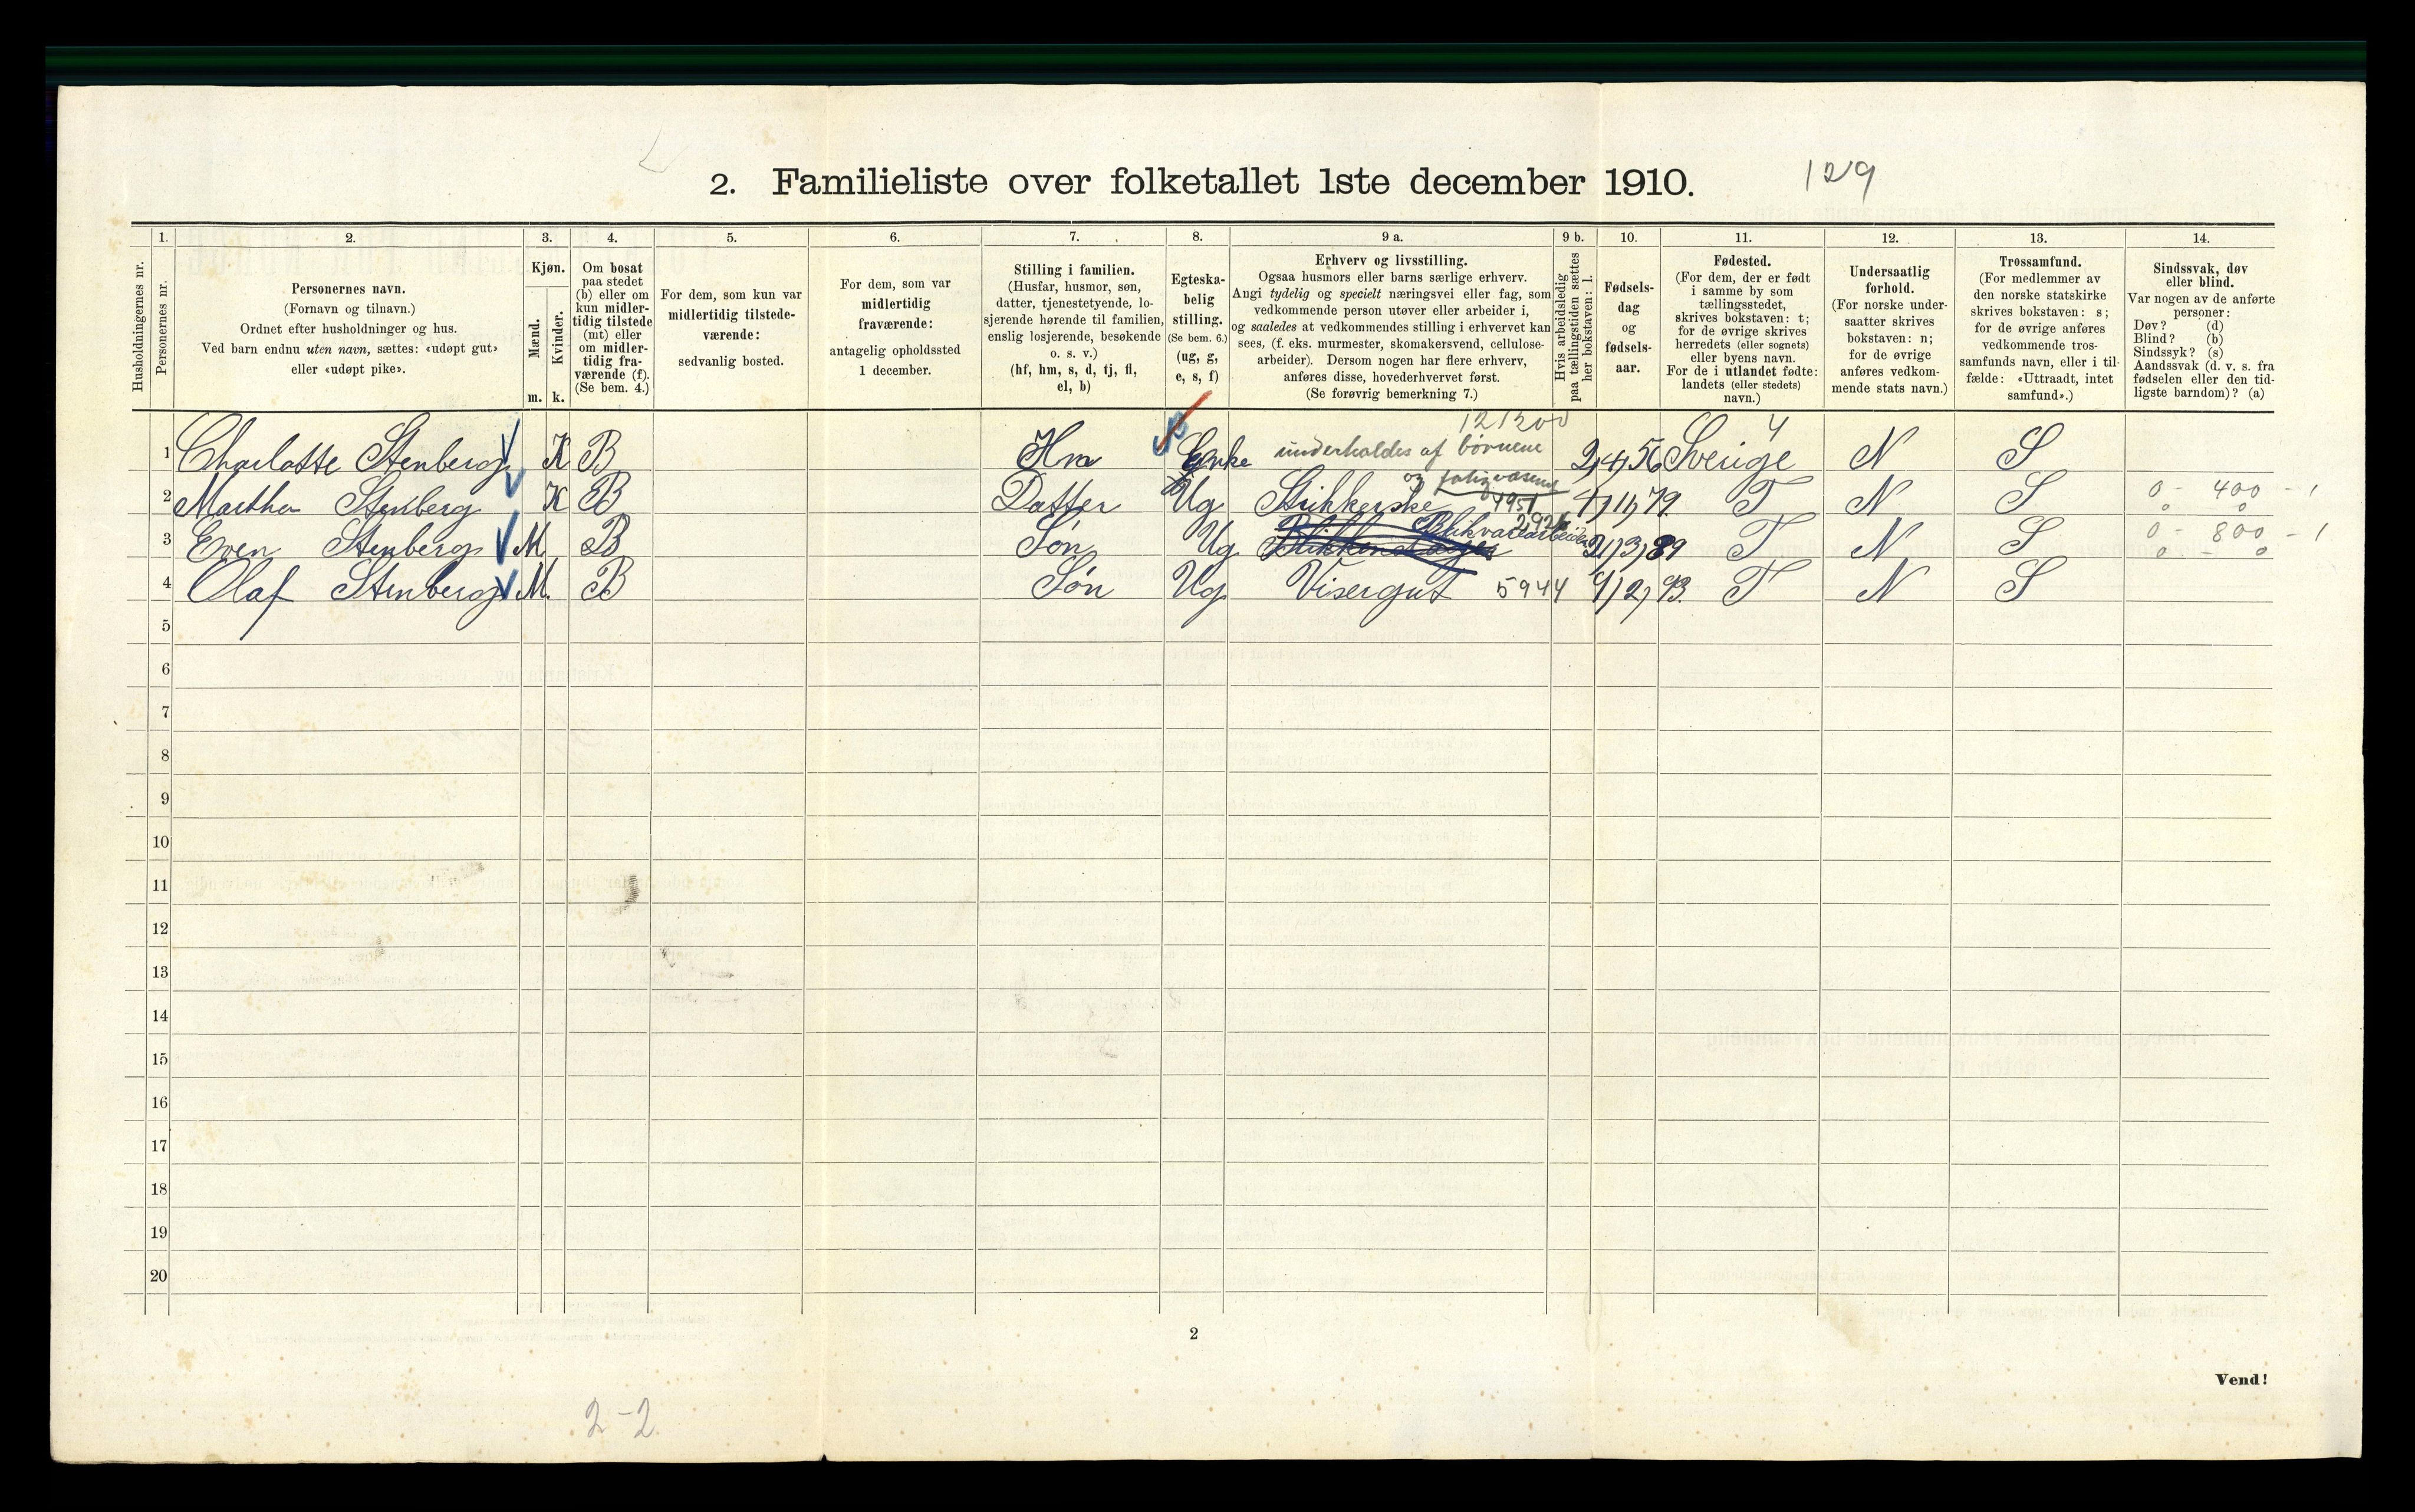 2. Familieliste over folketallet 1ste december 1910. 129
Husholdningernes nr.
1. Personernes nr.
2. Personernes navn.
(Fornavn og tilnavn.)
Ordnet efter husholdninger og hus.
Ved barn endnu uten navn, sættes: «udøpt gut»
eller «udøpt pike».
3. Kjøn.
Mænd. Kvinder.
m. k.
4. Om bosat
paa stedet
(b) eller om
kun midler-
tidig tilstede
(mt) eller
om midler-
tidig fra-
værende (f).
(Se bem. 4.)
5. For dem, som kun var
midlertidig tilstede-
værende:
sedvanlig bosted.
6. For dem, som var
midlertidig
fraværende:
antagelig opholdssted
1 december.
7. Stilling i familien.
(Husfar, husmor, søn,
datter, tjenestetyende, lo-
sjerende hørende til familien,
enslig losjerende, besøkende
o. s. v.)
(hf, hm, s, d, tj, fl,
el, b)
8. Egteska-
belig
stilling.
(Se bem. 6.)
(ug, g,
e, s, f)
9 a. Erhverv og livsstilling.
Ogsaa husmors eller barns særlige erhverv.
Angi tydelig og specielt næringsvei eller fag, som
vedkommende person utøver eller arbeider i,
og saaledes at vedkommendes stilling i erhvervet kan
sees, (f. eks. murmester, skomakersvend, cellulose-
arbeider). Dersom nogen har flere erhverv,
anføres disse, hovederhvervet først.
(Se forøvrig bemerkning 7.)
9 b. Hvis arbeidsledig
paa tællingstiden sættes
her bokstaven: l.
10. Fødsels-
dag
og
fødsels-
aar.
11. Fødested.
(For dem, der er født
i samme by som
tællingsstedet,
skrives bokstaven: t;
for de øvrige skrives
herredets (eller sognets)
eller byens navn.
For de i utlandet fødte:
landets (eller stedets)
navn.)
12. Undersaatlig
forhold.
(For norske under-
saatter skrives
bokstaven: n;
for de øvrige
anføres vedkom-
mende stats navn.)
13. Trossamfund.
(For medlemmer av
den norske statskirke
skrives bokstaven: s;
for de øvrige anføres
vedkommende tros-
samfunds navn, eller i til-
fælde: «Uttraadt, intet
samfund».)
14. Sindssvak, døv
eller blind.
Var nogen av de anførte
personer:
Døv? (d)
Blind? (b)
Sindssyk? (s)
Aandssvak (d. v. s. fra
fødselen eller den tid-
ligste barndom)? (a)
1 Charlotte Stenberg K B Hm Enke underholdes af børnene 2/4, 56 Sverige N S
og fatigvæsenet
2 Martha Stenberg K B Datter Ug Strikkerske 4951 4/11, 79 T N S 0 - 400 - 1
3 Even Stenberg M B Søn Ug Blikvarearbeider 21/3, 89 T N S 0 - 800 - 1
4 Olaf Stenberg M. B Søn Ug Visergut 5944 9/2, 93. T N S
5
6
7
8
9
10
11
12
13
14
15
16
17
18
19
20
2
Vend!
2-2